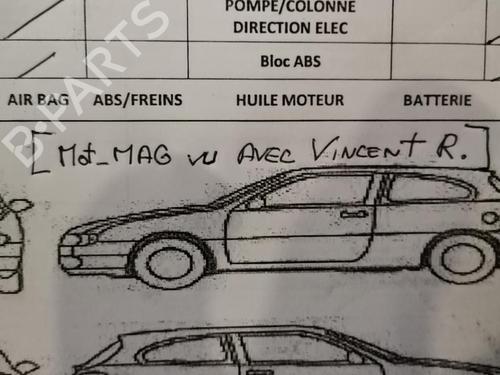 POMPE/COLONNE
DIRECTION ELEC
Bloc ABS
AIR BAG ABS/FREINS HUILE MOTEUR BATTERIE
[Mot_MAG VU AVEC VINCENT R.]
B-PARTS